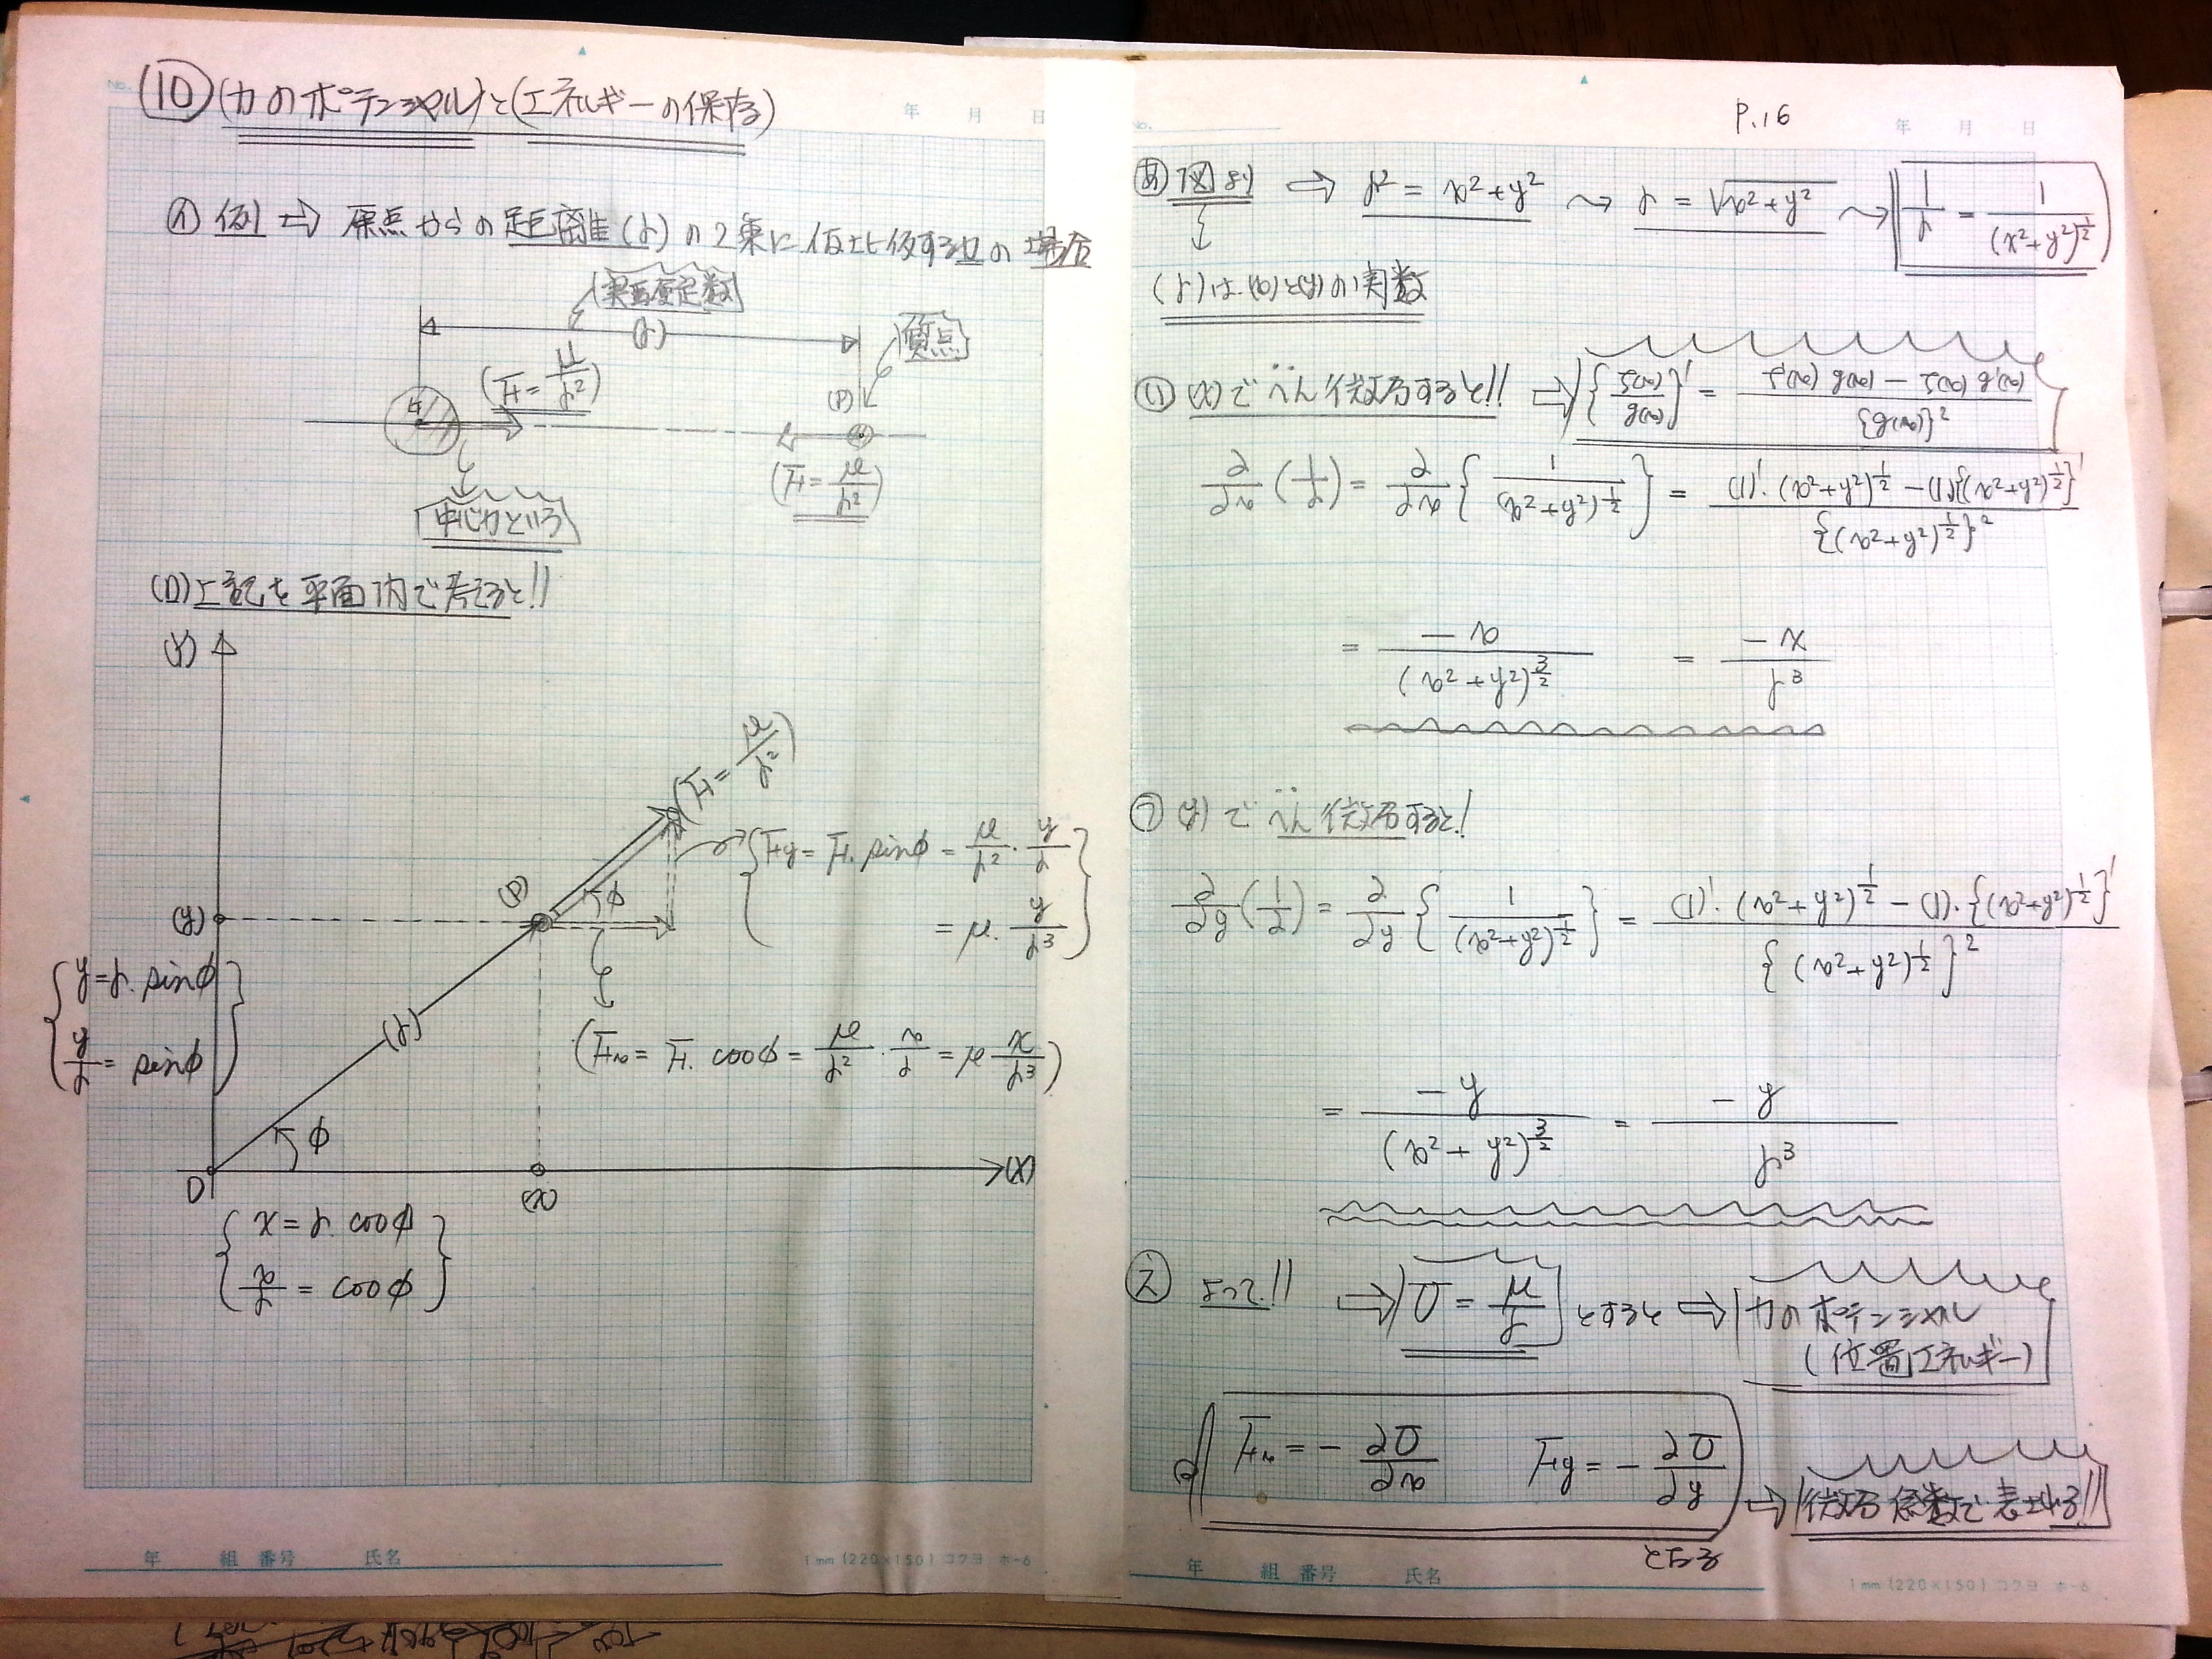 ⑩ (力のポテンシャル)と(エネルギーの保存)
㋑ 例 ⇨ 原点からの距離(r)の2乗に反比例する力の場合
(r)
質点
(F=μ/r²)
(P)
(F=μ/r²)
中心力という
(ロ)上記を平面内で考えると!!
(Y)
(F=μ/r²)
(P)
φ
{Fy=F·sinφ=μ/r²·y/r
=μ·y/r³}
(y)
{y=r·sinφ
y/r=sinφ}
(r)
(Fx=F·cosφ=μ/r²·x/r=μ x/r³)
φ
O
(x)
(X)
{x=r·cosφ
x/r=cosφ}
No.
年 月 日
年 組 番号 氏名
1mm (220×150) コクヨ ホ-6
P.16
No.
年 月 日
㋐ 図より ⇨ r²=x²+y² 〜→ r=√x²+y² 〜→ 1/r=1/(x²+y²)^½
(r)は(x)と(y)の関数
(x)でへん微分すると!! ⇨ {f(x)/g(x)}'=f'(x)g(x)−f(x)g'(x)/{g(x)}²
∂/∂x(1/r)=∂/∂x{1/(x²+y²)^½}=(1)'·(x²+y²)^½−(1)·{(x²+y²)^½}'/{(x²+y²)^½}²
=−x/(x²+y²)^3/2 =−x/r³
(y)でへん微分すると!
∂/∂y(1/r)=∂/∂y{1/(x²+y²)^½}=(1)'·(x²+y²)^½−(1)·{(x²+y²)^½}'/{(x²+y²)^½}²
=−y/(x²+y²)^3/2=−y/r³
え よって!! ⇨ U=μ/r とすると ⇨ 力のポテンシャル
(位置エネルギー)
Fx=−∂U/∂x Fy=−∂U/∂y
⇨ 微分係数で表される!!
となる
年 組 番号 氏名
1mm (220×150) コクヨ ホ-6